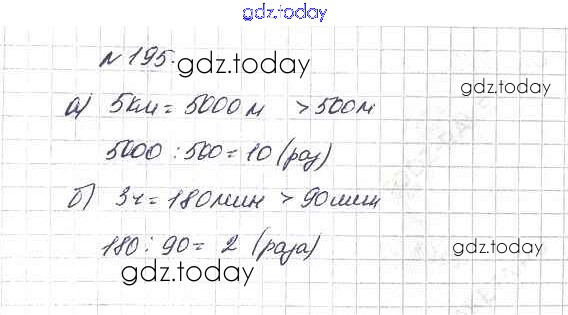 gdz.today
№ 195.
gdz.today
а) 5км = 5000 м > 500м
gdz.today
5000 : 500 = 10 (раз)
б) 3ч = 180мин > 90мин
180 : 90 = 2 (раза)
gdz.today
gdz.today